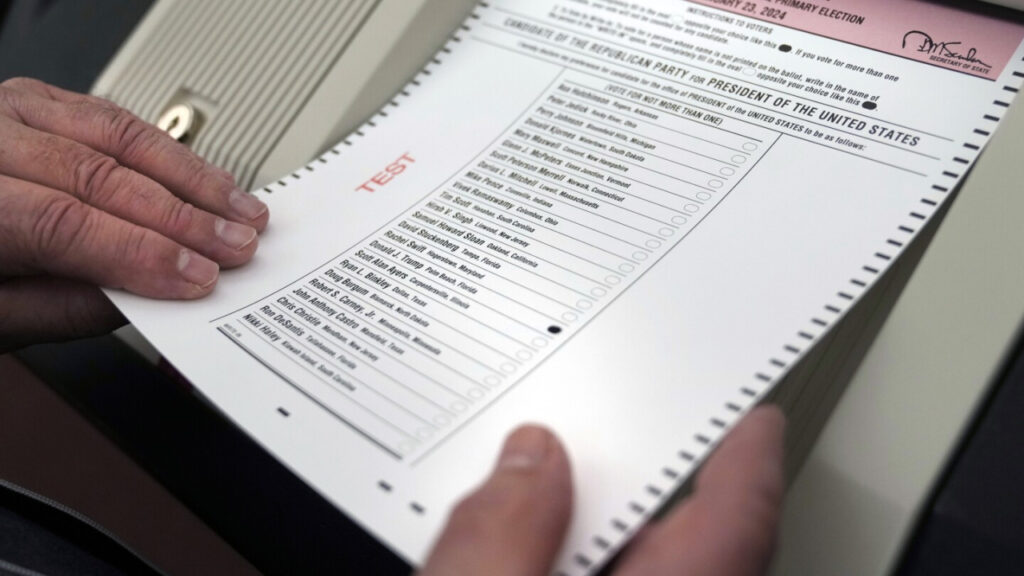 PRIMARY ELECTION
UARY 23, 2024
INSTRUCTIONS TO VOTERS
opposite your choice like this If you vote for more than one
SECRETARY OF STATE
a person whose name is not printed on the ballot, write in the name of
opposite your choice like this
CANDIDATE OF THE REPUBLICAN PARTY FOR PRESIDENT OF THE UNITED STATES
preference for candidate for the office of PRESIDENT of the UNITED STATES to be as follows:
(VOTE FOR NOT MORE THAN ONE)
Hutchinson Rogers, Arkansas
Peter Jedick Rocky River, Ohio
Perry Johnson Bloomfield Hills, Michigan
Kjornes Watertown, South Dakota
Mary Maxwell Concord, New Hampshire
Glenn J. McPeters Essex Junction, Vermont
Scott Peterson Merrell Norwalk, Connecticut
L. Mitchell Lowell, Massachusetts
Mike Pence Zionsville, Indiana
Vivek Ramaswamy Columbus, Ohio
Tim Scott South Carolina
V. Singh Linwood, New Jersey
Samuel Howard Sloan Oakland, California
David Stuckenberg Tampa, Florida
Rachel Swift Hagerstown, Maryland
Donald J. Trump Palm Beach, Florida
Scott Alan Ayers Carpentersville, Illinois
Ryan L. Binkley Dallas, Texas
Doug Burgum Bismarck, North Dakota
Robert S. Carney, Jr. Minneapolis, Minnesota
John Anthony Castro Mansfield, Texas
Chris Christie Mendham, New Jersey
Ron DeSantis Tallahassee, Florida
Nikki Haley Kiawah Island, South Carolina
TEST